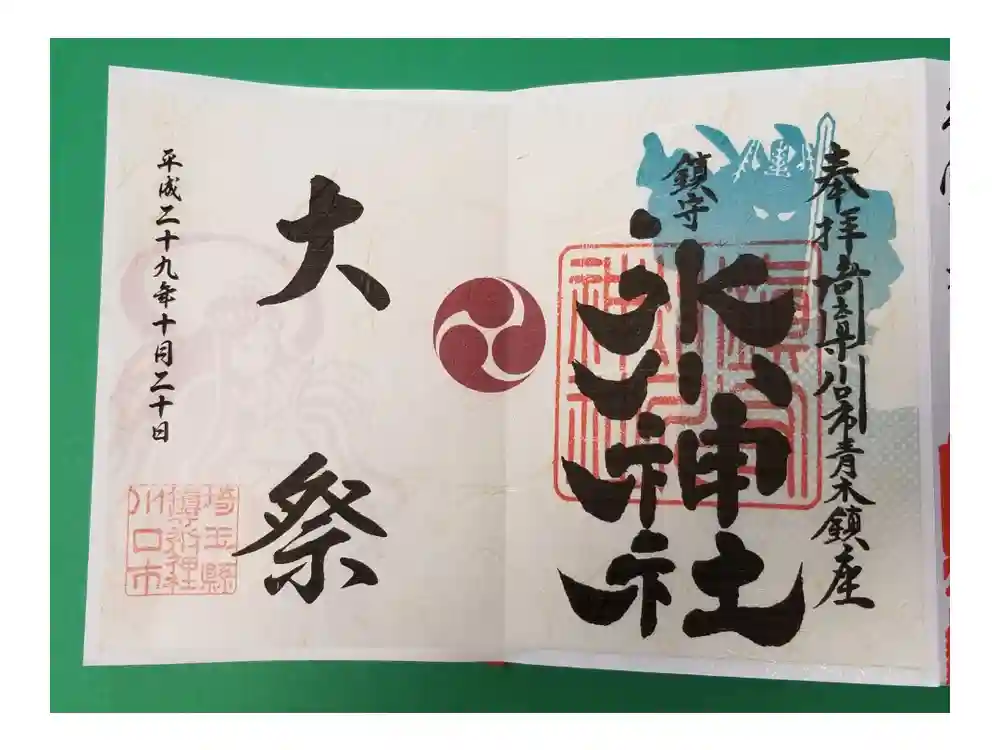 奉拝 埼玉県川口市青木鎮座
鎮守
氷川神社
大祭
平成二十九年十月二十日
埼玉縣
川口市